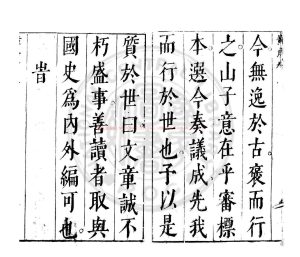 今無逸於古褒而行
之山子意在乎審標
本選今奏議成先我
而行於世也予以是
質於世曰文章誠不
朽盛事善讀者取與
國史為內外編可也
旹